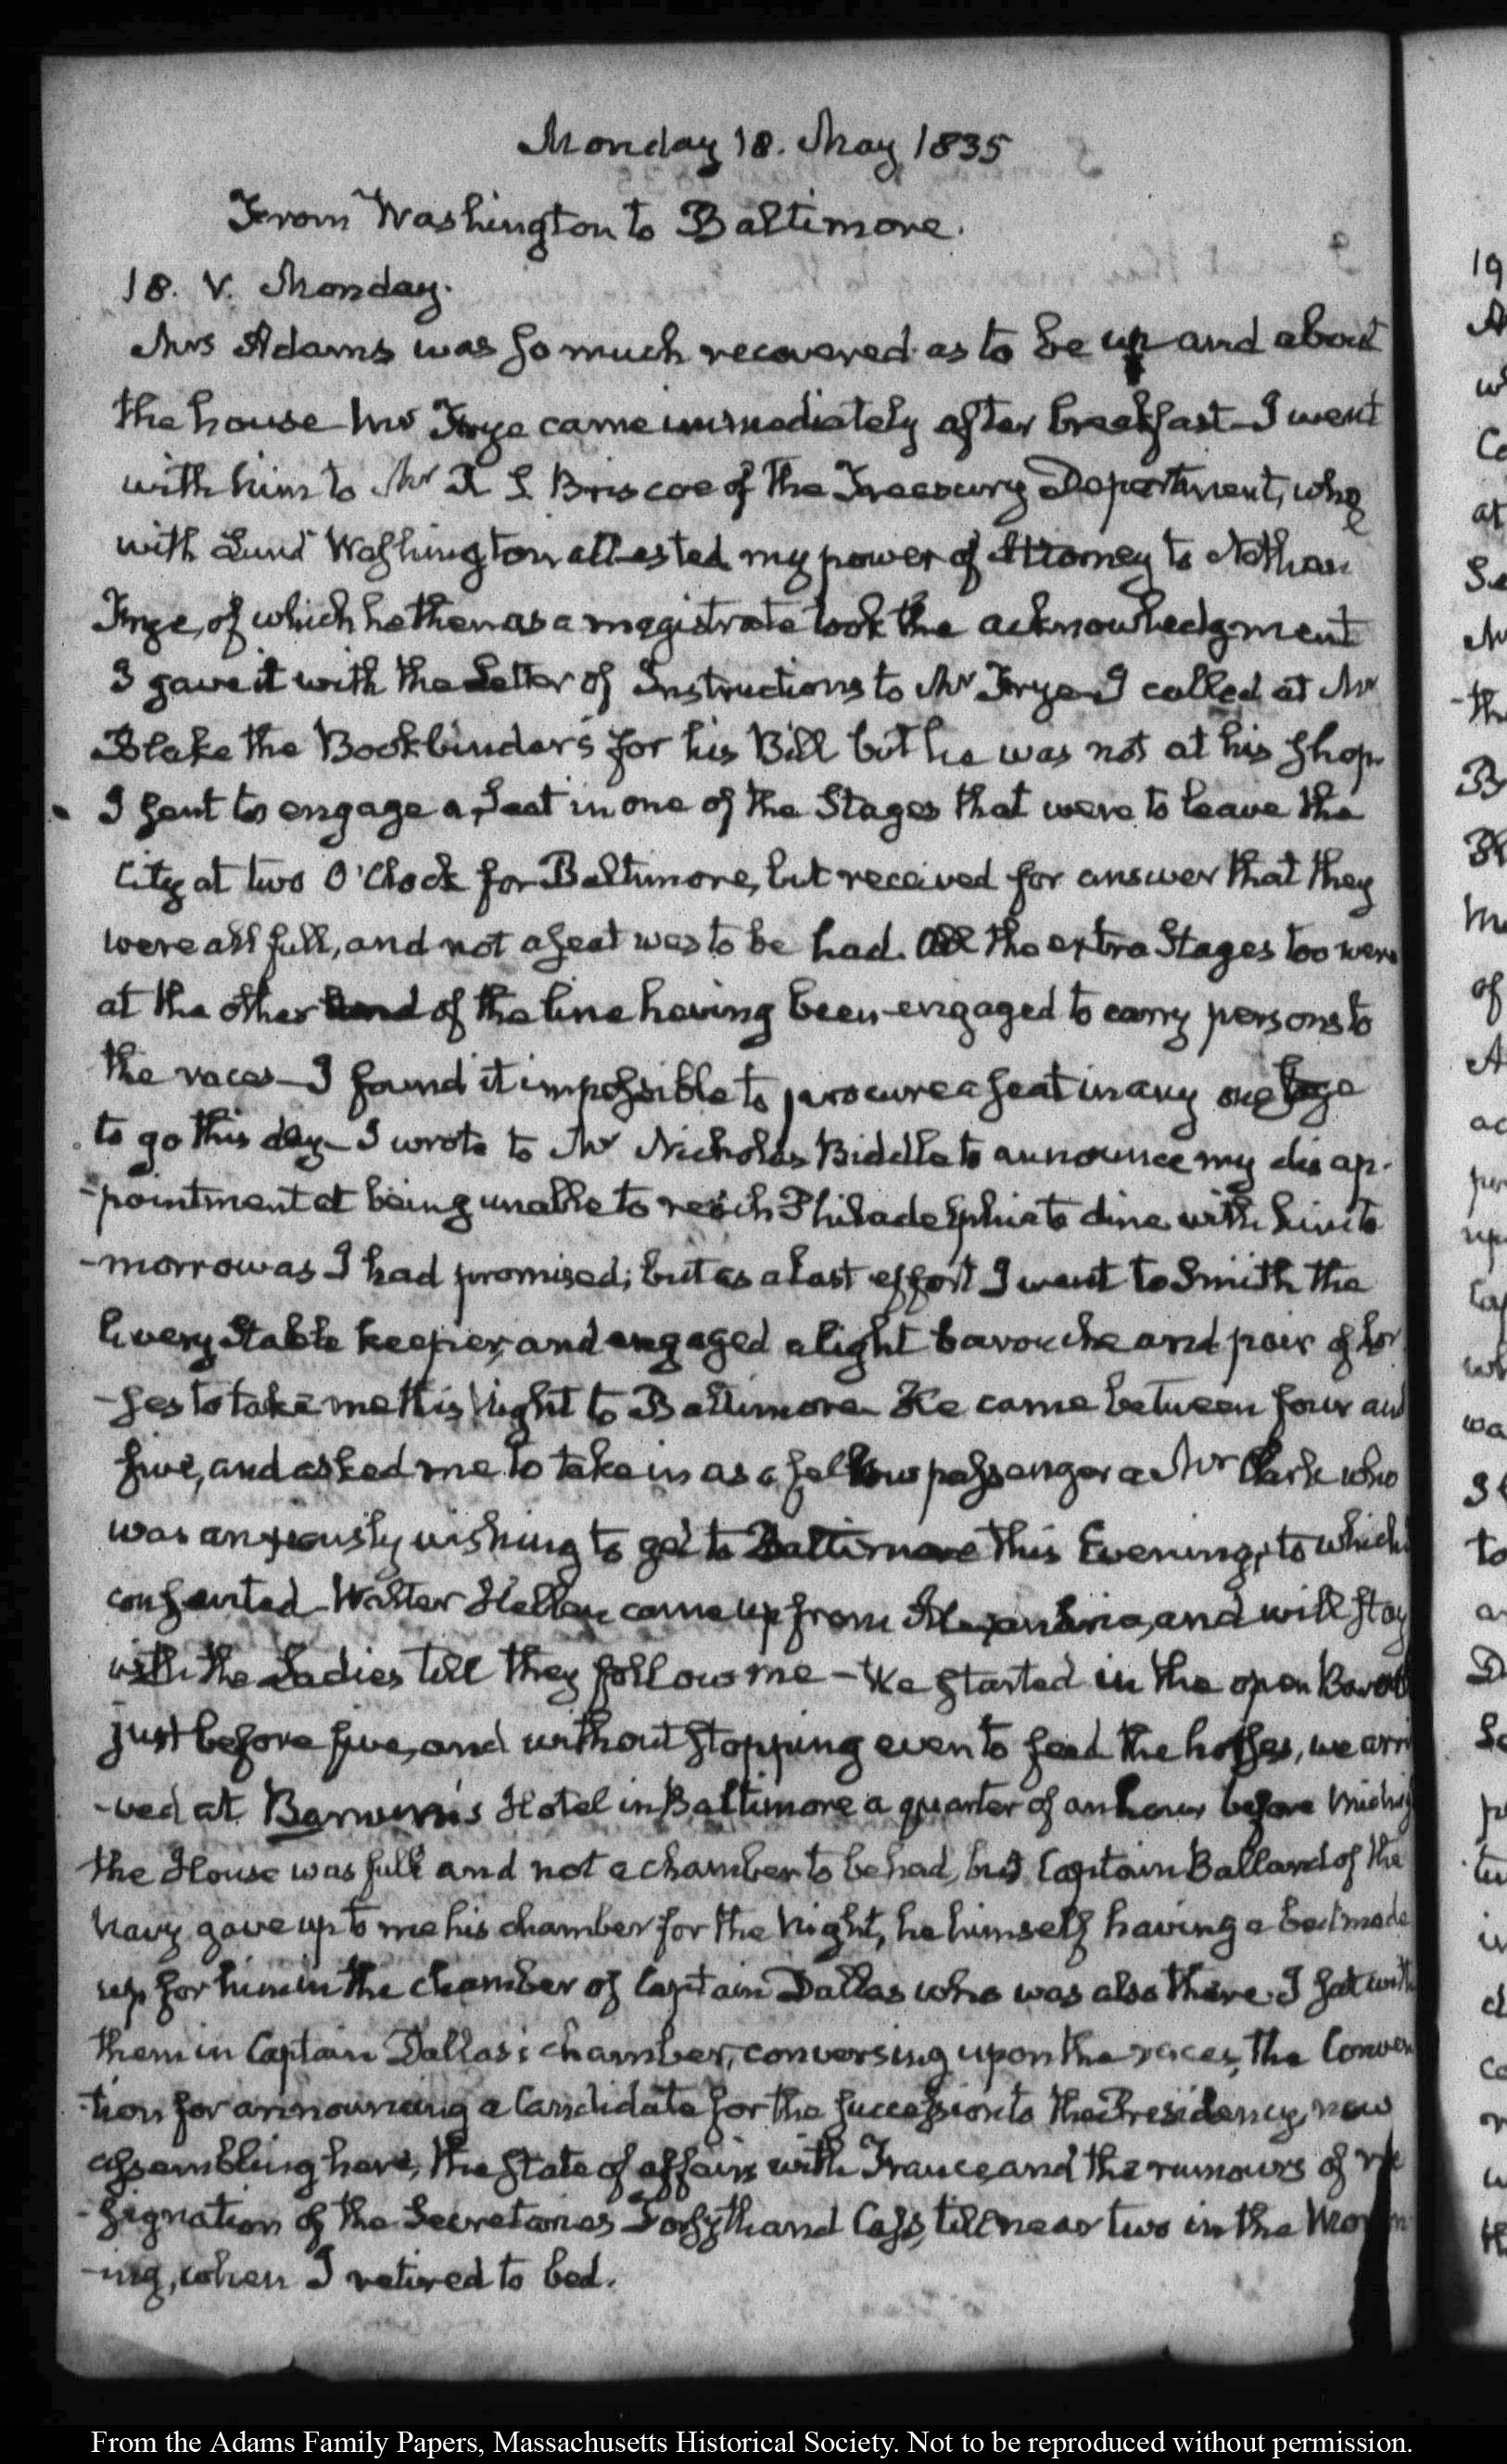 Monday 18. May 1835
From Washington to Baltimore.
18. V. Monday.
Mrs Adams was so much recovered as to be up and about
the house Mr Frye came immediately after breakfast – I went
with him to Mr R S Briscoe of the Treasury Department, who
with Lund Washington attested my power of Attorney to Nathan
Frye, of which he then as a magistrate took the acknowledgment
I gave it with the Letter of Instructions to Mr Frye – I called at Mr
Blake the Bookbinder's for his Bill but he was not at his shop.
I sent to engage a Seat in one of the Stages that were to leave the
City at two O'Clock for Baltimore, but received for answer that they
were all full, and not a seat was to be had. All the extra Stages too were
at the other end of the line having been engaged to carry persons to
the races – I found it impossible to procure a seat in any stage
to go this day – I wrote to Mr Nicholas Biddle to announce my disap-
-pointment at being unable to reach Philadelphia to dine with him to
-morrow as I had promised; but as a last effort I went to Smith the
livery Stable keeper, and engaged a light barouche and pair of hor
-ses to take me this Night to Baltimore He came between four and
five, and asked me to take in as a fellow passenger a Mr Clark who
was anxiously wishing to get to Baltimore this Evening, to which I
consented – Walter Hellen came up from Alexandria, and will stay
with the Ladies till they follow me – We started in the open
just before five, and without stopping even to feed the horses, we arri
-ved at Barnum's Hotel in Baltimore a quarter of an hour before
the House was full and not a chamber to be had, but Captain Ballard of the
Navy gave up to me his chamber for the Night, he himself having a bed made
up for him in the chamber of Captain Dallas who was also there. I sat with
them in Captain Dallas's chamber, conversing upon the races, the Conven
-tion for announcing a Candidate for the succession to the Presidency, now
assembling here, the state of affairs with France, and the rumours of re
-signation of the Secretaries Forsyth and Cass, till near two in the Morn
-ing, when I retired to bed.
From the Adams Family Papers, Massachusetts Historical Society. Not to be reproduced without permission.